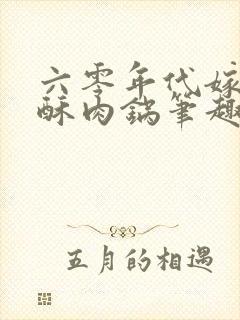 六零年代嫁
酥肉锅笔趣
五月的相遇